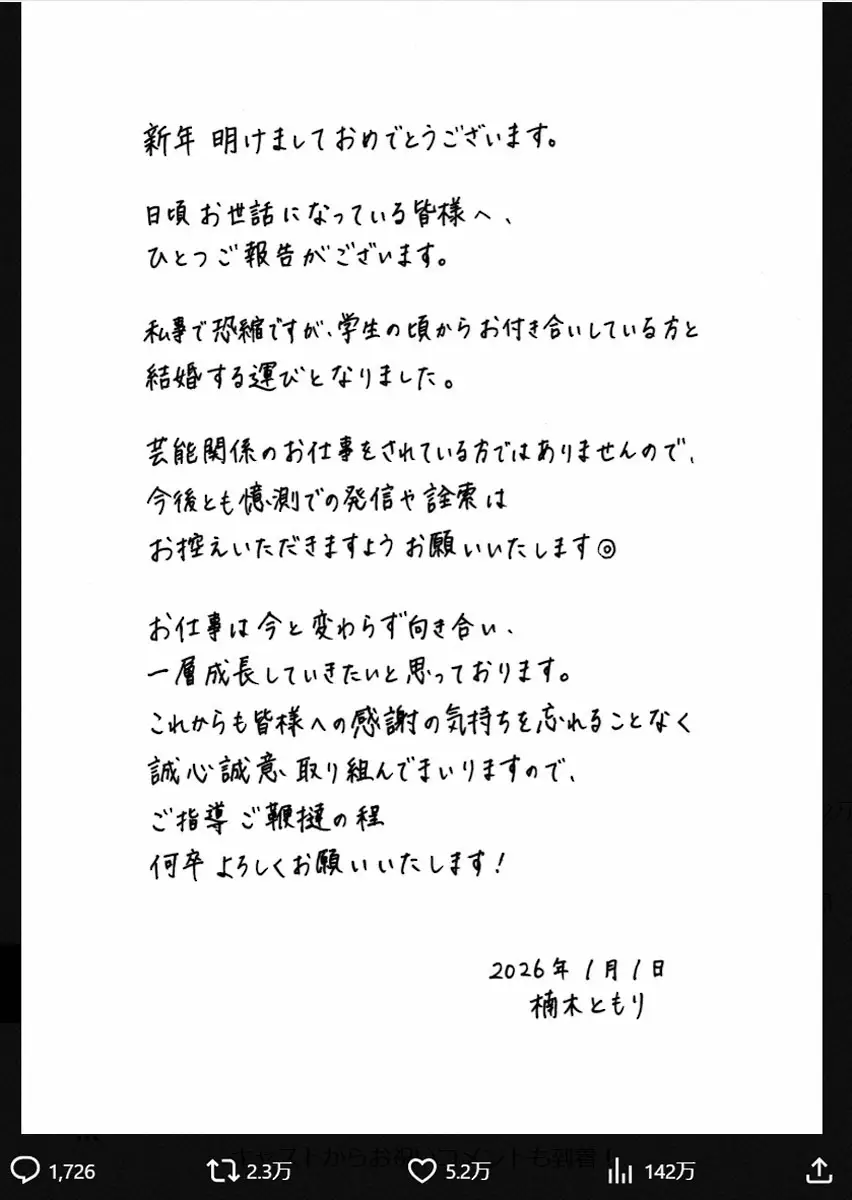 新年 明けましておめでとうございます。
日頃 お世話になっている皆様へ、
ひとつご報告がございます。
私事で恐縮ですが、学生の頃からお付き合いしている方と
結婚する運びとなりました。
芸能関係のお仕事をされている方ではありませんので、
今後とも憶測での発信や詮索は
お控えいただきますよう お願いいたします◎
お仕事は今と変わらず向き合い、
一層成長していきたいと思っております。
これからも皆様への感謝の気持ちを忘れることなく
誠心誠意 取り組んでまいりますので、
ご指導 ご鞭撻の程
何卒 よろしくお願いいたします!
2026年 1月1日
楠木ともり
キャストからお祝いコメントも到着!
1,726 2.3万 5.2万 142万